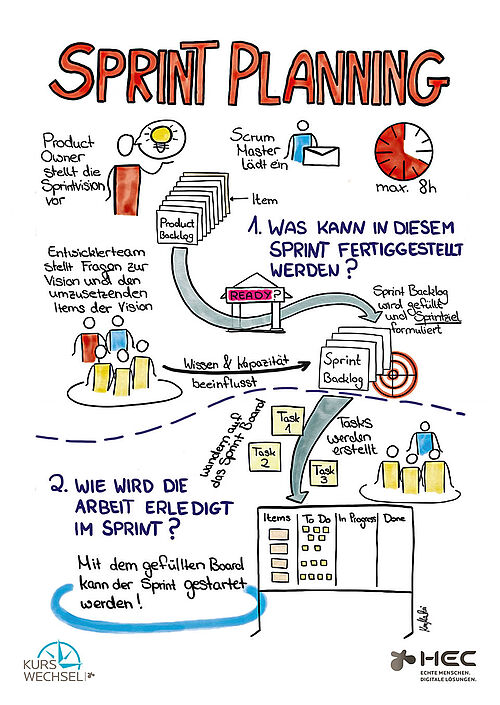 SPRINT PLANNING
Product
Owner
stellt die
Sprintvision
vor
Scrum
Master
lädt ein
max. 8h
Item
Product
Backlog
1. WAS KANN IN DIESEM
SPRINT FERTIGGESTELLT
WERDEN?
Entwicklerteam
stellt Fragen zur
Vision und den
umzusetzenden
Items der Vision
READY?
Sprint Backlog
wird gefüllt
und Sprintziel
formuliert
Wissen & Kapazität
beeinflusst
Sprint
Backlog
wandern auf
das Sprint Board
Task
1
Task
2
Task
3
Tasks
werden
erstellt
2. WIE WIRD DIE
ARBEIT ERLEDIGT
IM SPRINT?
Items To Do In Progress Done
Mit dem gefüllten Board
kann der Sprint gestartet
werden!
KURS
WECHSEL
HEC
ECHTE MENSCHEN.
DIGITALE LÖSUNGEN.